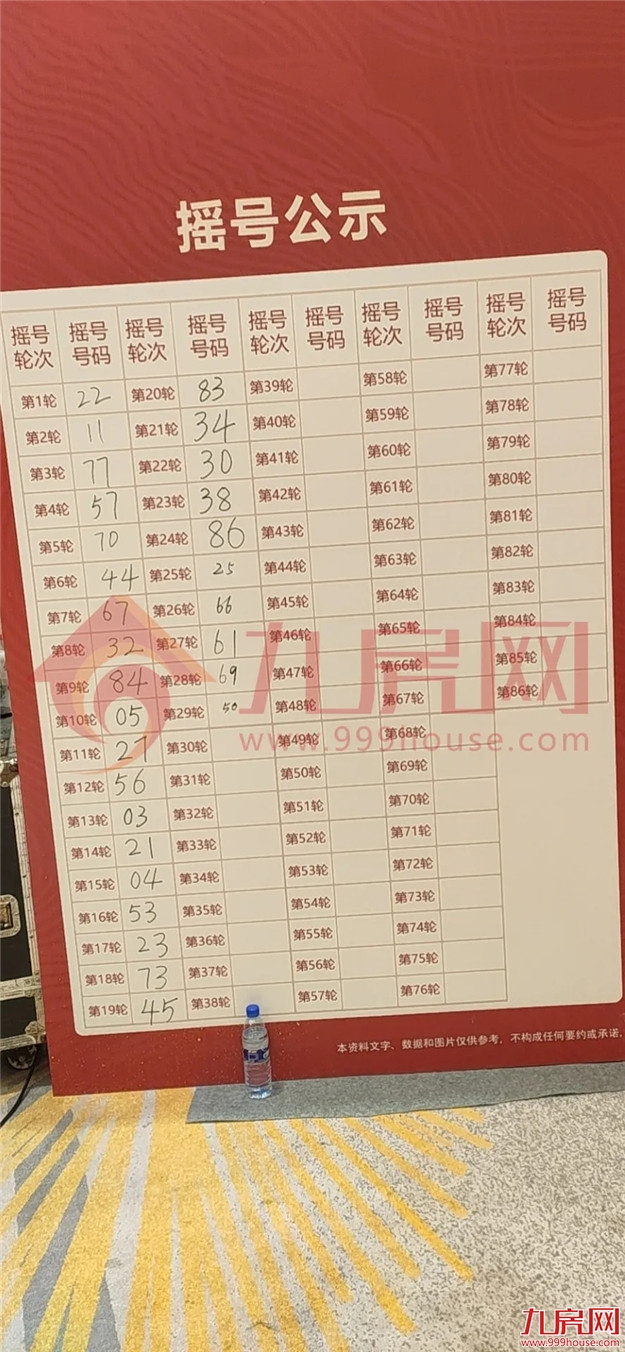 摇号公示
摇号轮次 摇号号码 摇号轮次 摇号号码 摇号轮次 摇号号码 摇号轮次 摇号号码 摇号轮次 摇号号码
第1轮 22 第20轮 83 第39轮 第58轮 第77轮
第2轮 11 第21轮 34 第40轮 第59轮 第78轮
第3轮 77 第22轮 30 第41轮 第60轮 第79轮
第4轮 57 第23轮 38 第42轮 第61轮 第80轮
第5轮 70 第24轮 86 第43轮 第62轮 第81轮
第6轮 44 第25轮 25 第44轮 第63轮 第82轮
第7轮 67 第26轮 66 第45轮 第64轮 第83轮
第8轮 32 第27轮 61 第46轮 第65轮 第84轮
第9轮 84 第28轮 69 第47轮 第66轮 第85轮
第10轮 05 第29轮 50 第48轮 第67轮 第86轮
第11轮 27 第30轮 第49轮 第68轮
第12轮 56 第31轮 第50轮 第69轮
第13轮 03 第32轮 第51轮 第70轮
第14轮 21 第33轮 第52轮 第71轮
第15轮 04 第34轮 第53轮 第72轮
第16轮 53 第35轮 第54轮 第73轮
第17轮 23 第36轮 第55轮 第74轮
第18轮 73 第37轮 第56轮 第75轮
第19轮 45 第38轮 第57轮 第76轮
九房网
www.999house.com
本资料文字、数据和图片仅供参考，不构成任何要约或承诺，
九房网
www.999house.com